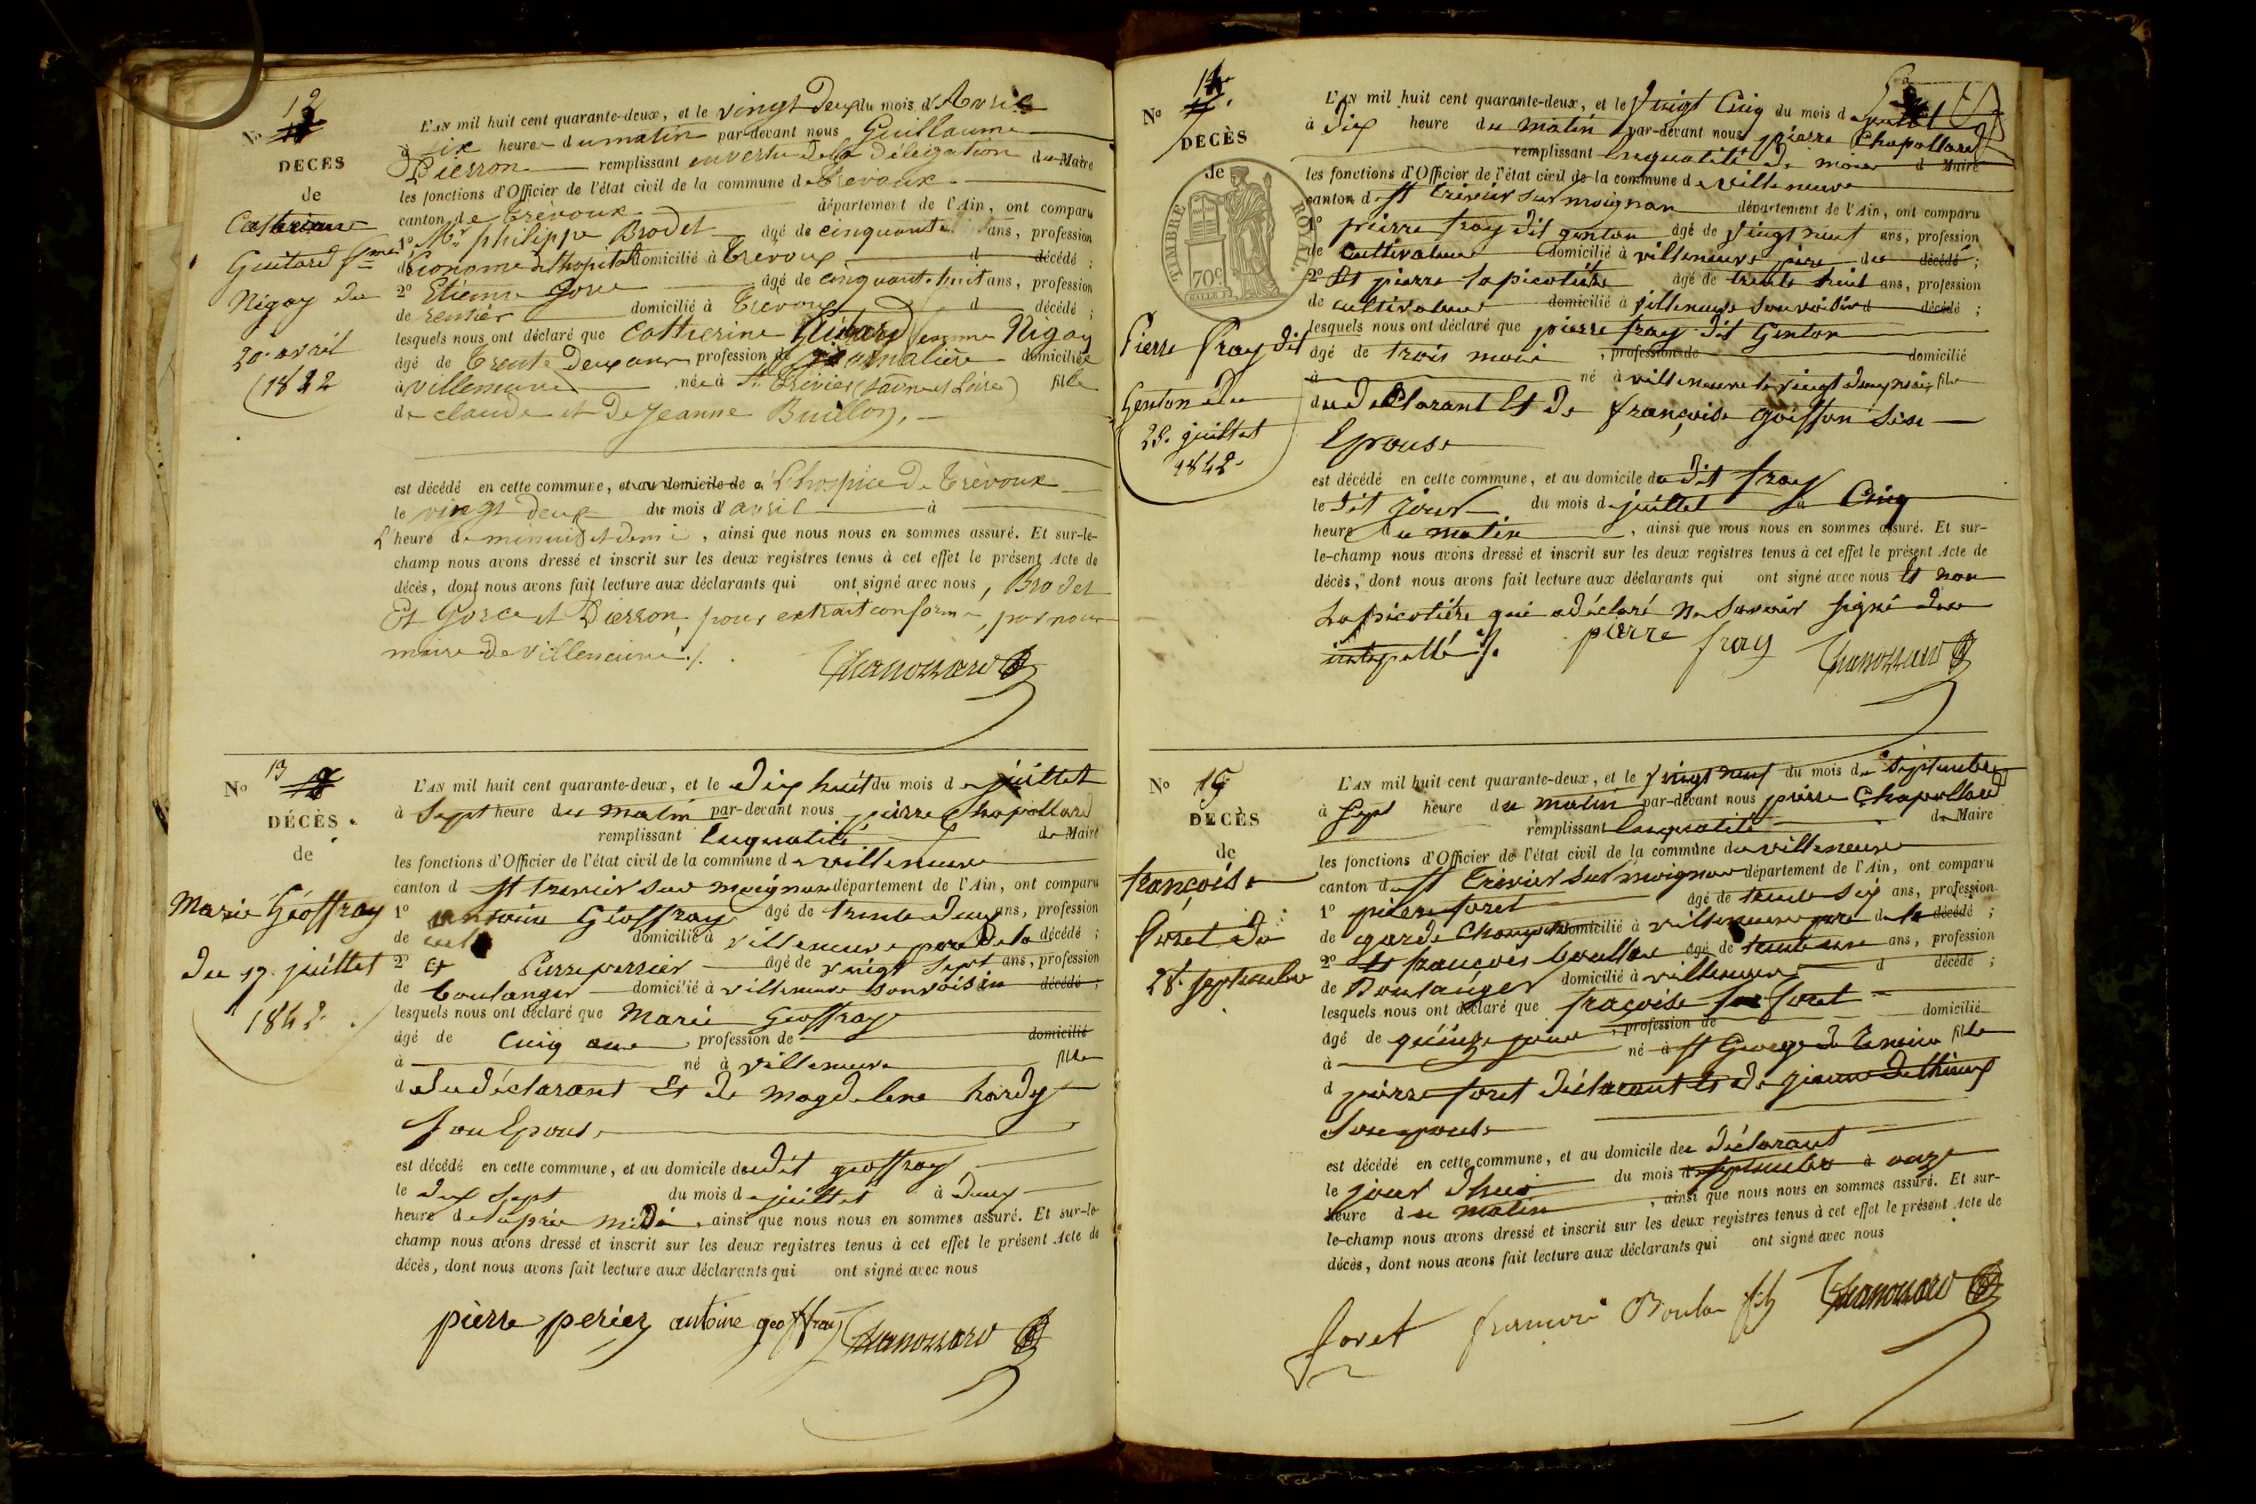 12
N°
DÉCÈS
de
Catherine
Guitard fme
Nigay du
20. avril
1842
L'AN mil huit cent quarante-deux, et le vingt deux du mois d'Avril
à six heures du matin par-devant nous Guillaume
Pierron remplissant en vertu de la délégation du Maire
les fonctions d'Officier de l'état civil de la commune de Trévoux
canton de Trévoux département de l'Ain, ont comparu
1° Mr philippe Brodet âgé de cinquante ans, profession
d'Econome de l'hopital domicilié à Trévoux d décédé ;
2° Etienne Gorce âgé de cinquante huit ans, profession
de rentier domicilié à Trévoux d décédé ;
lesquels nous ont déclaré que Catherine Guitard femme Nigay
âgé de Trente Deux ans, profession de journalière domiciliée
à villeneuve née à St Trivier (Saône et Loire) fille
de claude et De Jeanne Buillon,
est décédé en cette commune, et au domicile de à L'hospice De Trévoux
le vingt deux du mois d'avril à
L'heure de minuit et demi, ainsi que nous nous en sommes assuré. Et sur-le-
champ nous avons dressé et inscrit sur les deux registres tenus à cet effet le présent Acte de
décès, dont nous avons fait lecture aux déclarants qui ont signé avec nous, Brodet
Et Gorce et Pierron, pour extrait conforme, par nous
maire de villeneuve ./.
13
N°
DÉCÈS
de
Marie Géoffray
du 17. juillet
1842.
L'AN mil huit cent quarante-deux, et le dix huit du mois de juillet
à sept heure du matin par-devant nous pierre Chapollard
remplissant Enqualité de Maire
les fonctions d'Officier de l'état civil de la commune de villeneuve
canton d St trivier sur moignan département de l'Ain, ont comparu
1° antoine Géoffray âgé de trente deux ans, profession
de cult domicilié à villeneuve pere De la décédé ;
2° Et Pierre perrier âgé de vingt sept ans, profession
de boulanger domicilié à villeneuve son voisin décédé ;
lesquels nous ont déclaré que Marie Geoffray
âgé de Cinq ans, profession de domicilié
à né à villeneuve fille
d du déclarant Et de magdelene hardy
son Epouse
est décédé en cette commune, et au domicile dudit geoffray
le dix sept du mois de juillet à deux
heure de laprès midi, ainsi que nous nous en sommes assuré. Et sur-le-
champ nous avons dressé et inscrit sur les deux registres tenus à cet effet le présent Acte de
décès, dont nous avons fait lecture aux déclarants qui ont signé avec nous
pierre periez antoine geoffray
14
N°
DÉCÈS
de
TIMBRE ROYAL.
70c.
Pierre fray dit
Genton du
25. juillet
1842.
L'AN mil huit cent quarante-deux, et le vingt Cinq du mois de juillet
à dix heure du matin par-devant nous pierre Chapollard
remplissant Enqualité de maire d Maire
les fonctions d'Officier de l'état civil de la commune de villeneuve
canton d St Trivier sur moignan département de l'Ain, ont comparu
1° pierre fray dit genton âgé de vingt neuf ans, profession
de Cultivateur domicilié à villeneuve pere du décédé ;
2° Et pierre lapicotière âgé de trente huit ans, profession
de cultivateur domicilié à villeneuve son voisin d décédé ;
lesquels nous ont déclaré que pierre fray dit Genton
âgé de trois mois, profession de domicilié
à né à villeneuve fils
du déclarant Et de françoise goiffon son
Epouse
est décédé en cette commune, et au domicile dudit fray
le dit jour du mois de juillet à Cinq
heure du matin, ainsi que nous nous en sommes assuré. Et sur-
le-champ nous avons dressé et inscrit sur les deux registres tenus à cet effet le présent Acte de
décès, dont nous avons fait lecture aux déclarants qui ont signé avec nous Et non
Lapicotière qui a déclaré ne savoir signé de ce
interpellé ./.
pierre fray
N° 15
DÉCÈS
de
françoise
foret du
28. septembre
L'AN mil huit cent quarante-deux, et le vingt neuf du mois de septembre
à sept heure du matin par-devant nous pierre Chapollard
remplissant Enqualité de Maire
les fonctions d'Officier de l'état civil de la commune de villeneuve
canton d St Trivier sur moignan département de l'Ain, ont comparu
1° pierre foret âgé de trente six ans, profession
de garde Champetre domicilié à villeneuve pere de la décédé ;
2° Et françois boullon âgé de ans, profession
de Boulanger domicilié à villeneuve d décédé ;
lesquels nous ont déclaré que fraçoise foret
âgé de quinze jours, profession de domicilié
à né à St George de Renein fille
d pierre foret déclarant Et de
Son epouse
est décédé en cette commune, et au domicile du déclarant
le jour dhier du mois de septembre à onze
heure du matin, ainsi que nous nous en sommes assuré. Et sur-
le-champ nous avons dressé et inscrit sur les deux registres tenus à cet effet le présent Acte de
décès, dont nous avons fait lecture aux déclarants qui ont signé avec nous
foret